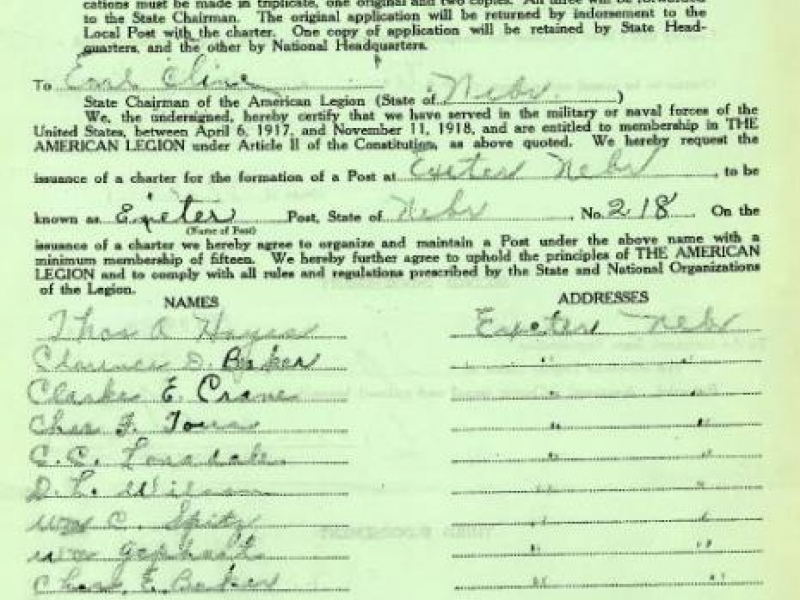 cations must be made in triplicate, one original and two copies. All three will be forwarded
to the State Chairman. The original application will be returned by indorsement to the
Local Post with the charter. One copy of application will be retained by State Head-
quarters, and the other by National Headquarters.
To Earl Cline
State Chairman of the American Legion (State of Nebr.)
We, the undersigned, hereby certify that we have served in the military or naval forces of the
United States, between April 6, 1917, and November 11, 1918, and are entitled to membership in THE
AMERICAN LEGION under Article II of the Constitution, as above quoted. We hereby request the
issuance of a charter for the formation of a Post at Exeter Nebr, to be
known as Exeter Post, State of Nebr, No. 218. On the
(Name of Post)
issuance of a charter we hereby agree to organize and maintain a Post under the above name with a
minimum membership of fifteen. We hereby further agree to uphold the principles of THE AMERICAN
LEGION and to comply with all rules and regulations prescribed by the State and National Organizations
of the Legion.
NAMES ADDRESSES
Thos A Hayes Exeter Nebr
Clarence D. Baker " "
Clarke E. Crane " "
Chas F. " "
C. C. Lonsdale " "
D. L. Wilson " "
Wm C. Spitz " "
Wm Gephart " "
Chas. E. Baker " "